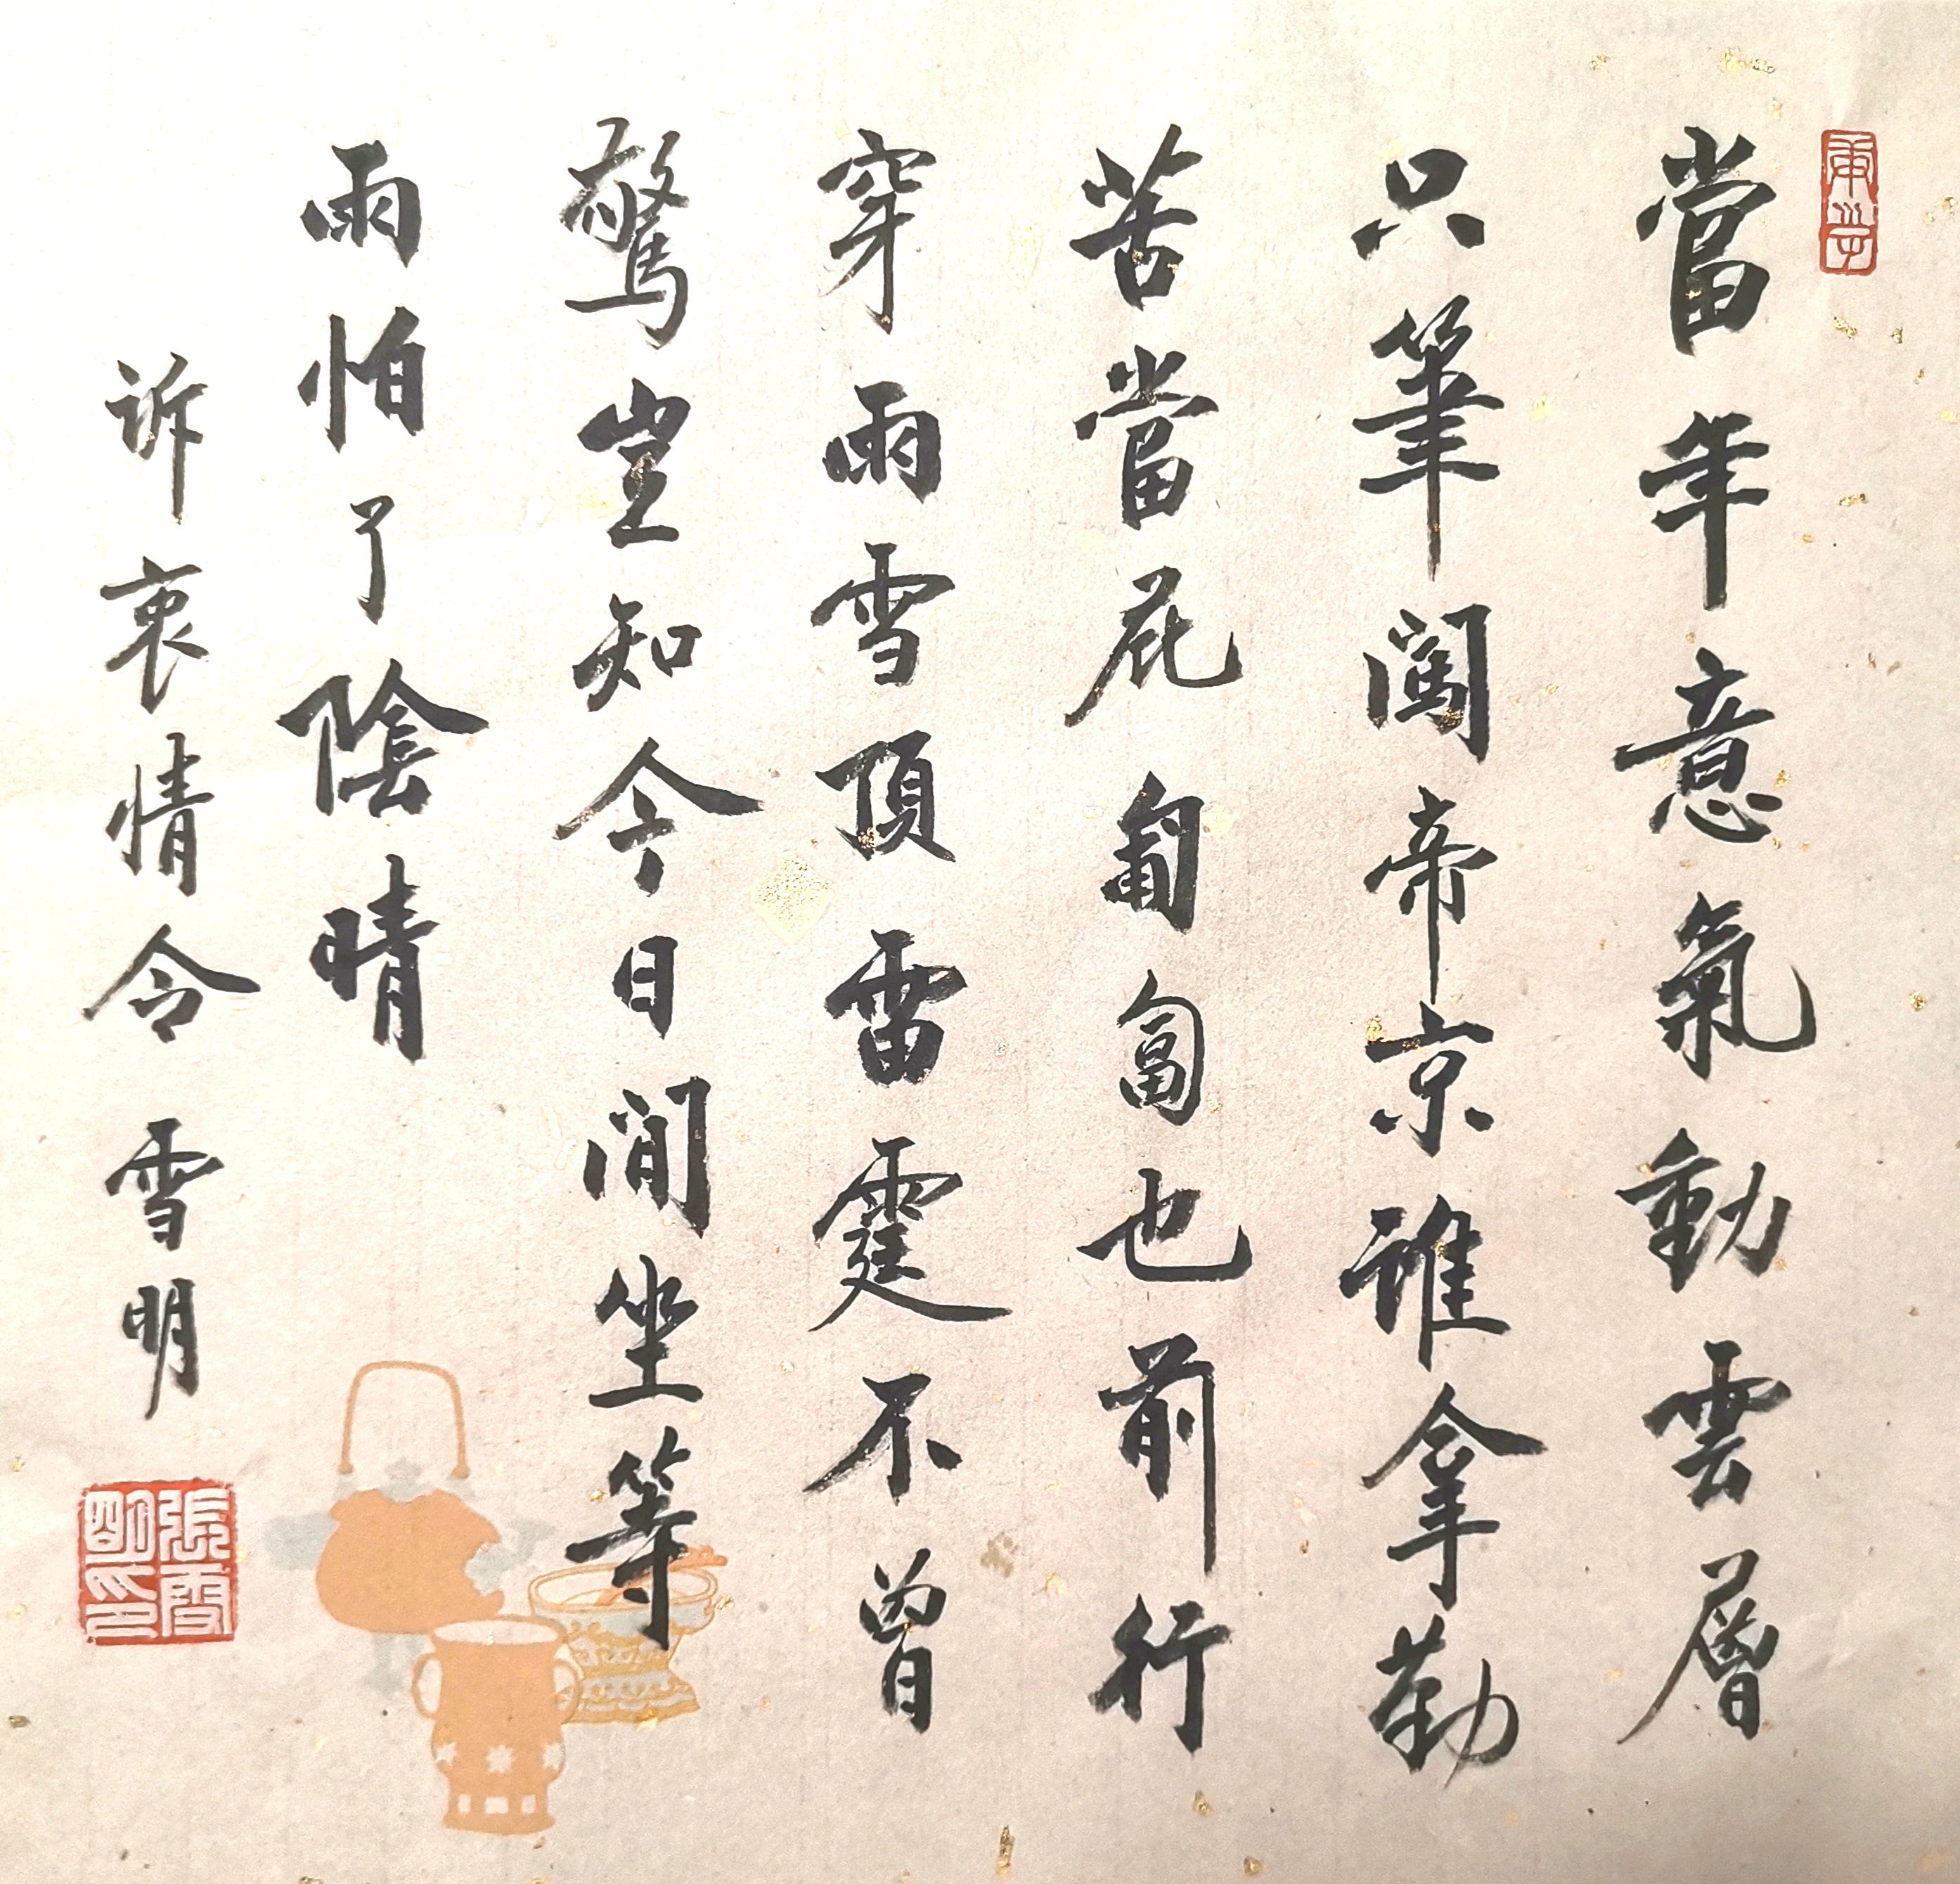 當年意氣動雲層
只筆闖帝京誰拿勤
苦當屁匍匐也前行
穿雨雪頂雷霆不曾
驚豈知今日閒坐等
雨怕了陰晴
訴衷情令 雪明
張雪明印